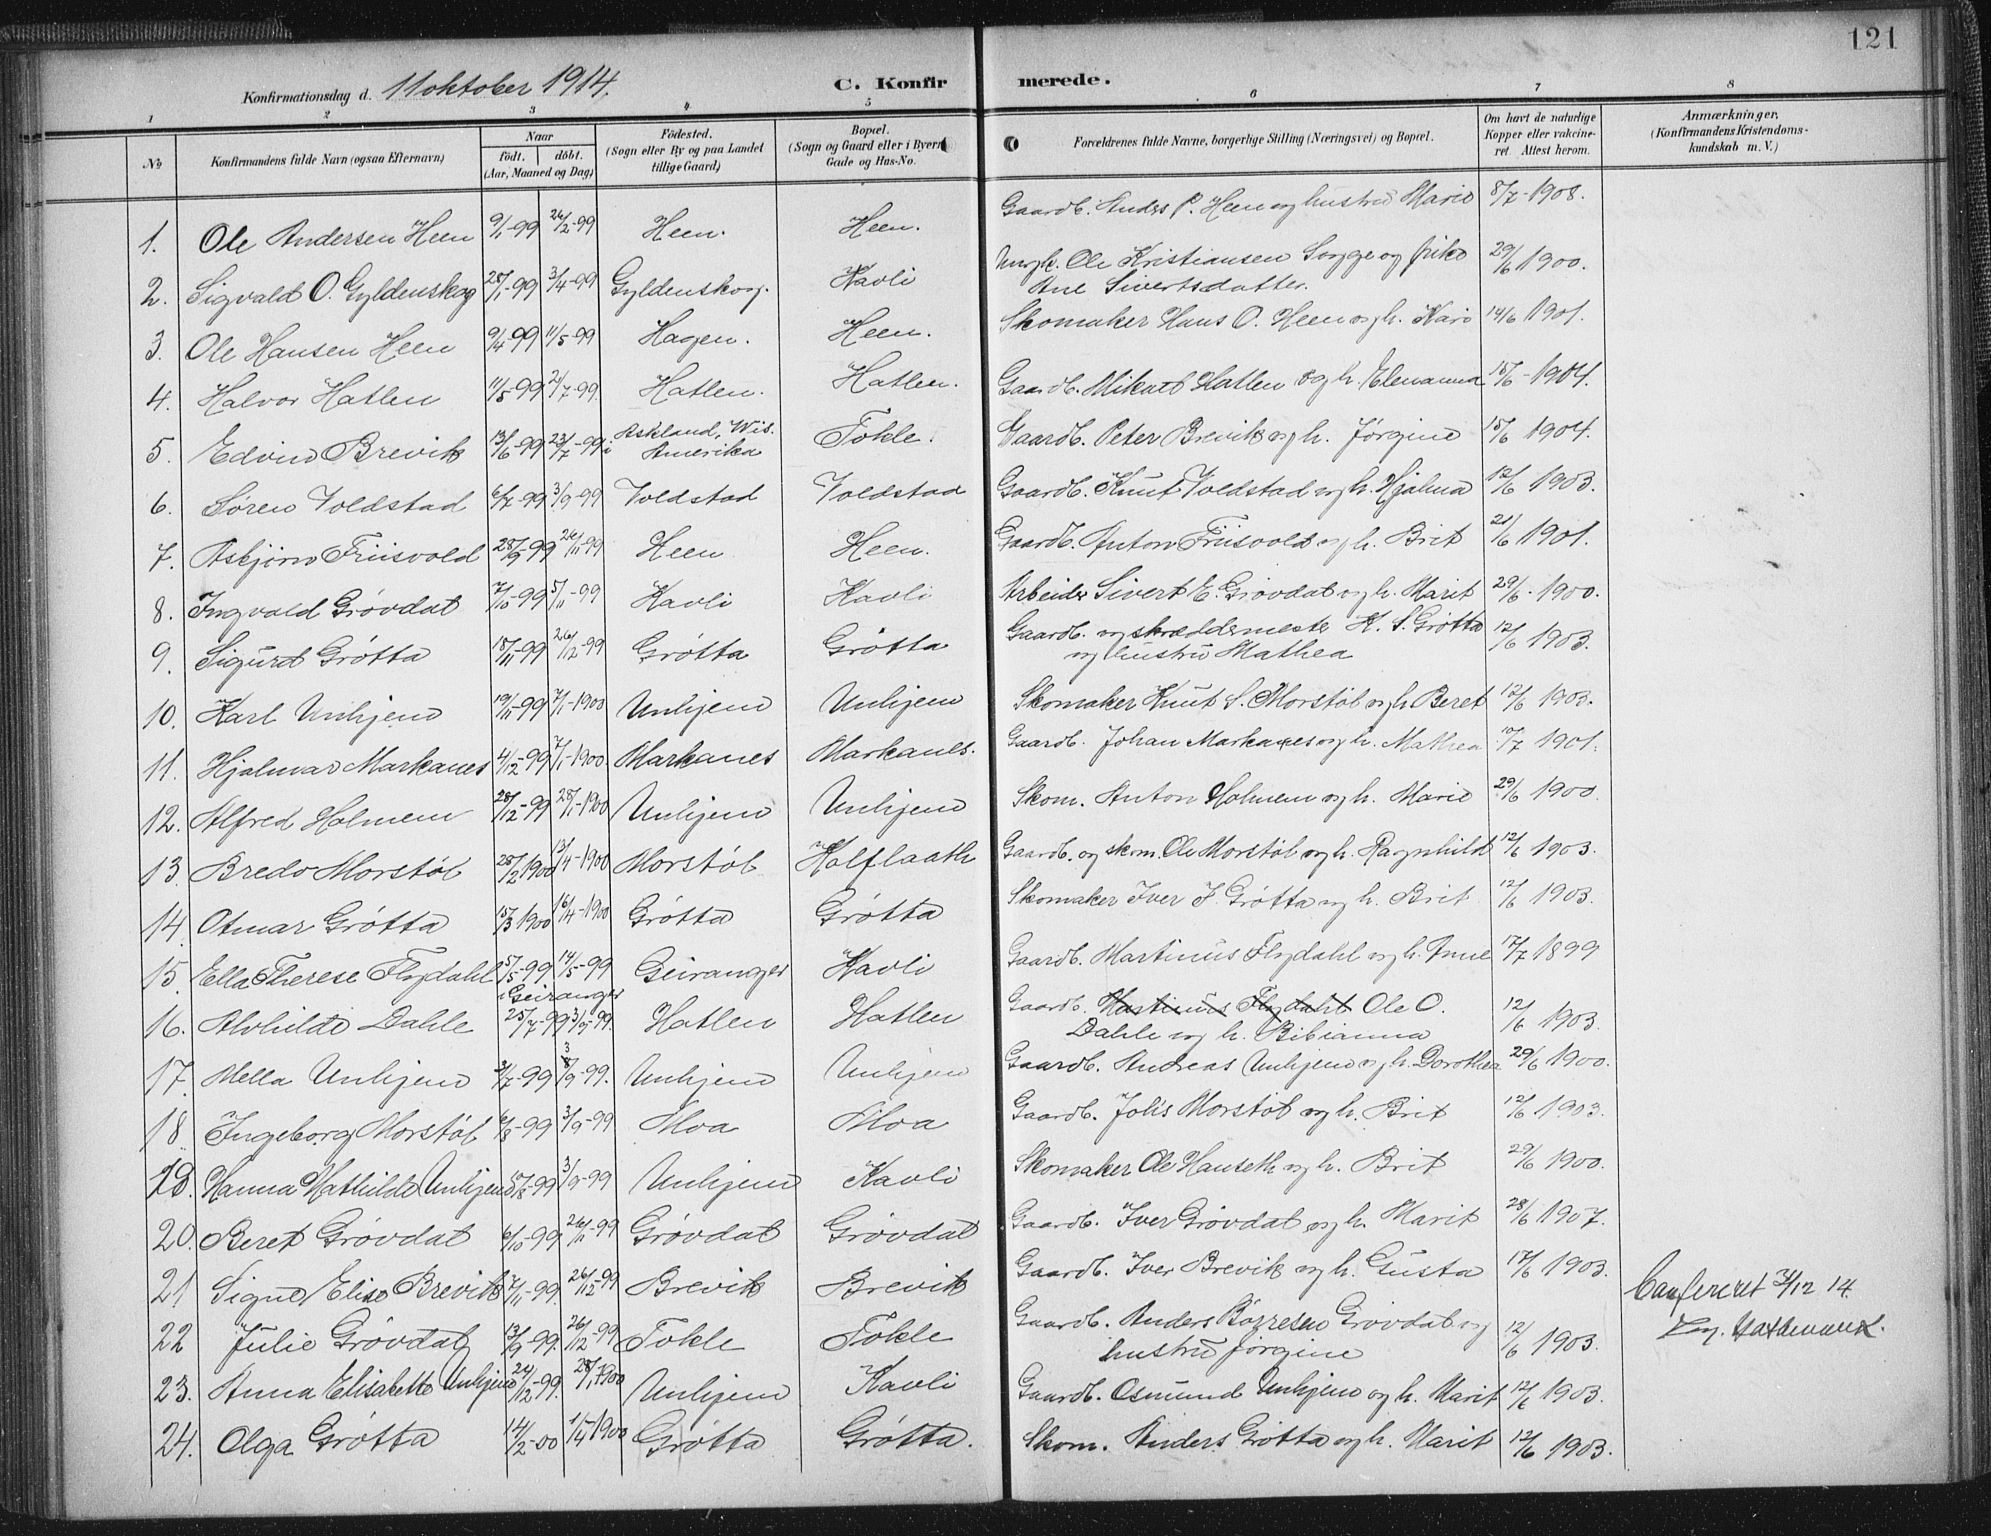 121
Konfirmationsdag d. 11 oktober 1914. C. Konfirmerede.
1 2 3 4 5 6 7 8
No Konfirmandens fulde Navn (ogsaa Efternavn) Naar født. døbt. (Aar, Maaned og Dag) Fødested. (Sogn eller By og paa Landet tillige Gaard) Bopæl. (Sogn og Gaard eller i Byern Gade og Hus-No. Forældrenes fulde Navne, borgerlige Stilling (Næringsvei) og Bopæl. Om havt de naturlige Kopper eller vakcineret. Attest herom. Anmærkninger, (Konfirmandens Kristendomskundskab m. V.)
1. Ole Andersen Heen 9/1-99 26/2-99 Heen. Heen. Gaardb. Anders P. Heen og hustru Marie 8/7-1908.
2. Sigvald O. Gyldenskog 28/1-99 3/4-99 Gyldenskog. Kavli Ungk. Ole Kristiansen Sogge og pike 29/6 1900.
Ane Sivertsdatter.
3. Ole Hansen Heen 9/4-99 11/5-99 Hagen. Heen. Skomaker Hans O. Heen og h. Kari 14/6 1901.
4. Halvor Hatlen 11/5-99 2/7-99 Hatlen. Hatlen. Gaardb. Mikael Hatlen og h. Elenanna 15/6-1904.
5. Edvin Brevik 13/6-99 23/7-99 i Askland, Wis. Amerika Tokle. Gaardb. Peter Brevik og h. Jørgine 15/6 1904.
6. Søren Voldstad 6/7-99 3/9-99 Voldstad Voldstad Gaardb. Knut Voldstad og h. Hjalma 12/6 1903.
7. Asbjørn Friisvold 28/9-99 26/11-99 Heen Heen. Gaardb. Anton Friisvold og h. Brit 21/6 1901.
8. Ingvald Grøvdal 7/10-99 5/11-99 Kavli Kavli Arbeider Sivert E. Grøvdal og h. Marit 29/6-1900.
9. Sigurd Grøtta 18/11-99 26/12-99 Grøtta Grøtta Gaardb. og skræddermester K. S. Grøtta 12/6 1903.
og hustru Mathea
10. Karl Unhjem 19/11-99 7/1-1900 Unhjem Unhjem Skomaker Knut S. Morstøl og h. Beret 12/6 1903.
11. Hjalmar Markanes 4/12-99 7/1-1900 Markanes Markanes. Gaardb. Johan Markanes og h. Mathea 10/7 1901.
12. Alfred Holmem 28/12-99 28/1-1900 Unhjem Unhjem Skom. Anton Holmem og h. Marie 29/6 1900.
13. Bredo Morstøl 28/2 1900 13/4-1900 Morstøl Kolflaath Gaardb. og skom. Ole Morstøl og h. Ragnhild 12/6 1903.
14. Otmar Grøtta 15/3 1900 16/4-1900 Grøtta Grøtta Skomaker Iver J. Grøtta og h. Brit 12/6 1903.
15. Ella Therese Flydahl 5/5-99 14/5-99 i Geiranger Geiranger Kavli Gaardb. Martinus Flydahl og h. Anne 17/7 1899
16. Alvhilde Dahle 25/7-99 3/9-99. Hatlen Hatlen Gaardb. Martinus Flydahl Ole O. 12/6 1903.
Dahle og h. Bibianna
17. Mella Unhjem 2/7-99 3/9-99. Unhjem Unhjem Gaardb. Andreas Unhjem og h. Dorothea 29/6 1900.
18. Ingeborg Morstøl 6/8-99 3/9-99 Moa Moa Gaardb. Johs Morstøl og h. Brit 12/6 1903.
19. Hanna Mathilde Unhjem 15/8-99 3/9-99 Unhjem Kavli Skomaker Ole Hanseth og h. Brit 29/6 1900.
20. Beret Grøvdal 6/10-99 26/11-99 Grøvdal Grøvdal Gaardb. Iver Grøvdal og h. Marit 28/6 1907.
21 Signe Elise Brevik 7/11-99. 26/12-99 Brevik Brevik Gaardb. Iver Brevik og h. Gusta 17/6 1903.
22 Julie Grøvdal 13/9-99. 26/12-99 Tokle Tokle Gaardb. Anders Børresen Grøvdal og 12/6 1903.
hustru Jørgine
23. Anna Elisabette Unhjem 24/12-99. 28/1 1900 Unhjem Kavli Gaardb. Osmund Unhjem og h. Marit 12/6 1903.
24. Olga Grøtta 14/2-00 1/4 1900 Grøtta Grøtta. Skom. Anders Grøtta og h. Marit 12/6 1903.
Confereret 31/12 14.